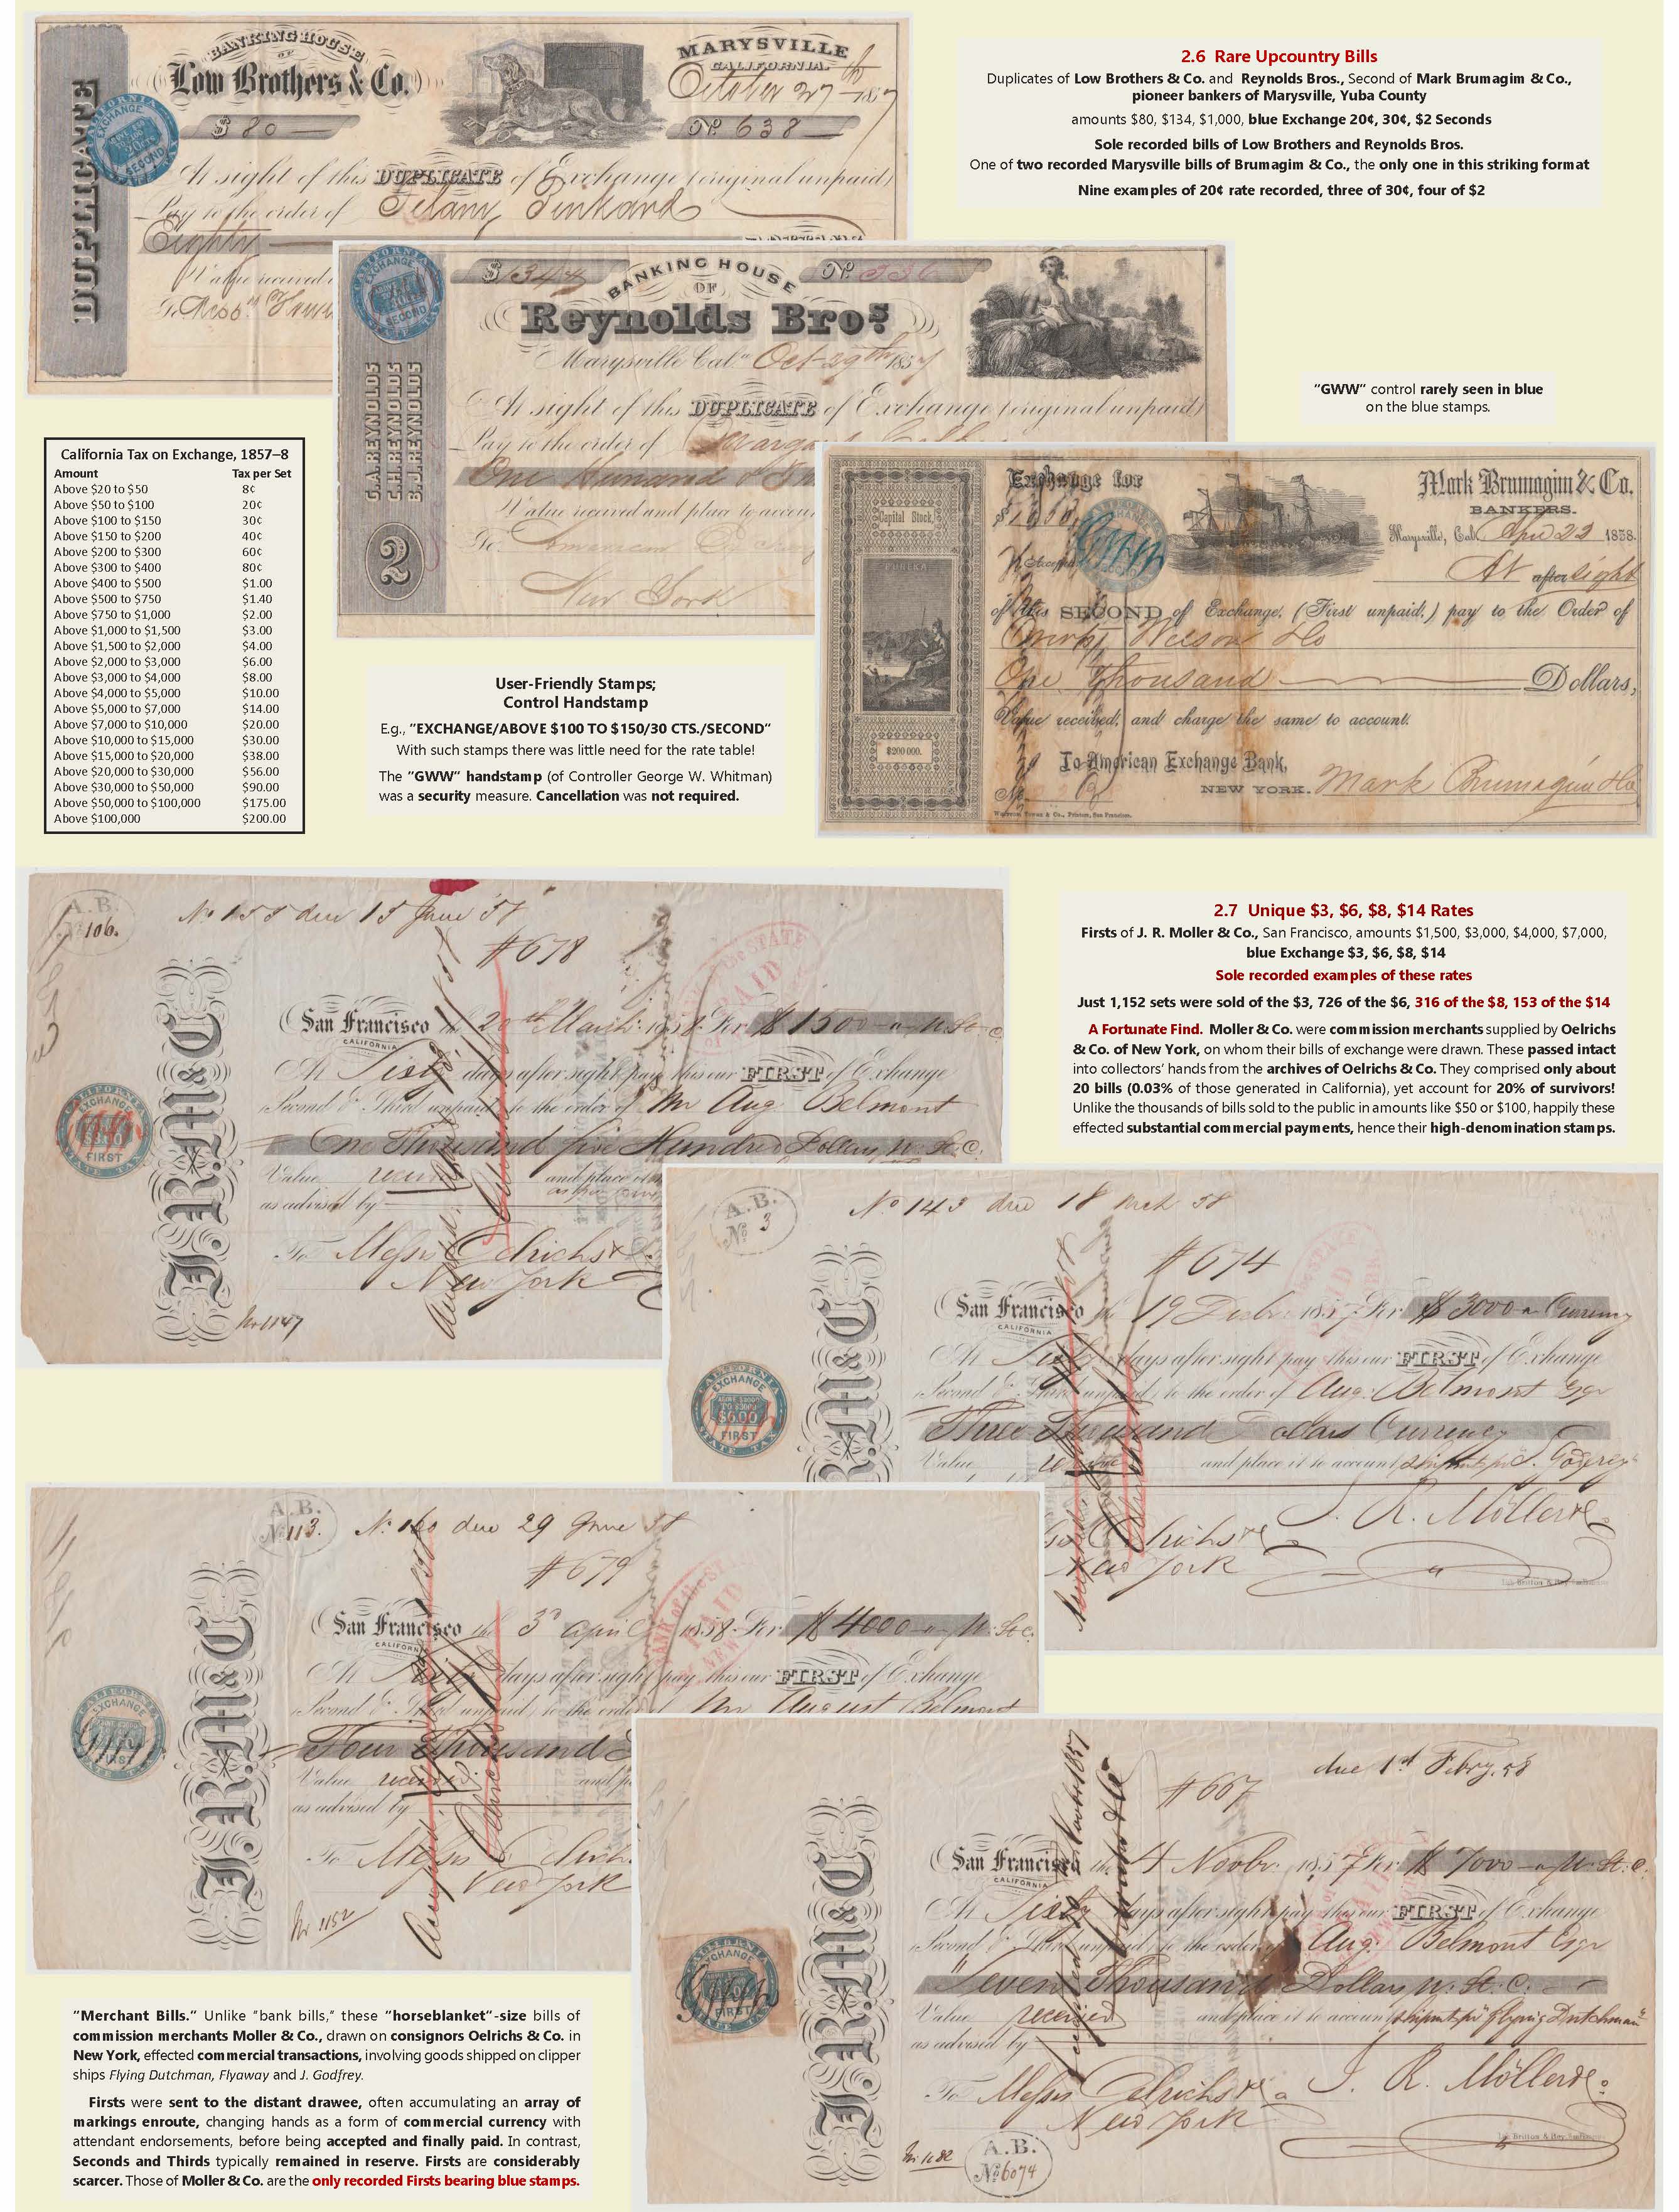 BANKING HOUSE
OF
Low Brothers & Co.
MARYSVILLE
CALIFORNIA.
October 27th 1857
DUPLICATE
CALIFORNIA
EXCHANGE
SECOND
$ 80
No. 638
At sight of this DUPLICATE of Exchange (original unpaid)
Pay to the order of
Eighty
Value received
2.6 Rare Upcountry Bills
Duplicates of Low Brothers & Co. and Reynolds Bros., Second of Mark Brumagim & Co.,
pioneer bankers of Marysville, Yuba County
amounts $80, $134, $1,000, blue Exchange 20¢, 30¢, $2 Seconds
Sole recorded bills of Low Brothers and Reynolds Bros.
One of two recorded Marysville bills of Brumagim & Co., the only one in this striking format
Nine examples of 20¢ rate recorded, three of 30¢, four of $2
CALIFORNIA
EXCHANGE
SECOND
$ 134
No. 336
BANKING HOUSE
OF
Reynolds Bros.
Marysville Cal. Oct 29th 1857
G.A. REYNOLDS
C.H. REYNOLDS
B.J. REYNOLDS
2
At sight of this DUPLICATE of Exchange (original unpaid)
Pay to the order of
One Hundred &
Value received and place to account
To American
New York
"GWW" control rarely seen in blue
on the blue stamps.
California Tax on Exchange, 1857–8
Amount Tax per Set
Above $20 to $50 8¢
Above $50 to $100 20¢
Above $100 to $150 30¢
Above $150 to $200 40¢
Above $200 to $300 60¢
Above $300 to $400 80¢
Above $400 to $500 $1.00
Above $500 to $750 $1.40
Above $750 to $1,000 $2.00
Above $1,000 to $1,500 $3.00
Above $1,500 to $2,000 $4.00
Above $2,000 to $3,000 $6.00
Above $3,000 to $4,000 $8.00
Above $4,000 to $5,000 $10.00
Above $5,000 to $7,000 $14.00
Above $7,000 to $10,000 $20.00
Above $10,000 to $15,000 $30.00
Above $15,000 to $20,000 $38.00
Above $20,000 to $30,000 $56.00
Above $30,000 to $50,000 $90.00
Above $50,000 to $100,000 $175.00
Above $100,000 $200.00
User-Friendly Stamps;
Control Handstamp
E.g., "EXCHANGE/ABOVE $100 TO $150/30 CTS./SECOND"
With such stamps there was little need for the rate table!
The "GWW" handstamp (of Controller George W. Whitman)
was a security measure. Cancellation was not required.
Capital Stock,
EUREKA
$200000.
Exchange for
Mark Brumagim & Co.
BANKERS.
Marysville, Cal. Apr 22 1858.
At after sight
of this SECOND of Exchange, (First unpaid,) pay to the Order of
One Thousand Dollars,
Value received, and charge the same to account.
To American Exchange Bank,
NEW YORK. Mark Brumagim & Co
No.
2.7 Unique $3, $6, $8, $14 Rates
Firsts of J. R. Moller & Co., San Francisco, amounts $1,500, $3,000, $4,000, $7,000,
blue Exchange $3, $6, $8, $14
Sole recorded examples of these rates
Just 1,152 sets were sold of the $3, 726 of the $6, 316 of the $8, 153 of the $14
A Fortunate Find. Moller & Co. were commission merchants supplied by Oelrichs
& Co. of New York, on whom their bills of exchange were drawn. These passed intact
into collectors' hands from the archives of Oelrichs & Co. They comprised only about
20 bills (0.03% of those generated in California), yet account for 20% of survivors!
Unlike the thousands of bills sold to the public in amounts like $50 or $100, happily these
effected substantial commercial payments, hence their high-denomination stamps.
A.B.
No 106.
No 155 due 15 June 58
#678
San Francisco the 20th March 1858 For $ 1500
CALIFORNIA
At Sixty days after sight pay this our FIRST of Exchange
Second & Third unpaid, to the order of Mr Aug. Belmont
One Thousand five Hundred Dollars
Value received and place it
as advised by
To Messrs Oelrichs &
New York
No 1147
J.R.M&Co
CALIFORNIA
EXCHANGE
FIRST
STATE TAX
A.B.
No 3
No 143 due 18 Mch 58
#674
San Francisco the 19 Decbr 1857 For $ 3000 Currency
CALIFORNIA
At Sixty days after sight pay this our FIRST of Exchange
Second & Third unpaid, to the order of Aug. Belmont Esqr
Three Thousand Dollars Currency
Value received and place it to account shipment pr J. Godfrey
J. R. Möller & Co
Oelrichs & Co
New York
CALIFORNIA
EXCHANGE
TO $3000
$6.00
FIRST
STATE TAX
A.B.
No 113.
No 160 due 29 June 58
#679
San Francisco the 3d April 1858 For $ 4000
CALIFORNIA
At Sixty days after sight pay this our FIRST of Exchange
Second & Third unpaid, to the order Mr August Belmont
Four Thousand
Value received and
as advised by
To Messrs Oelrich
New York
No 1152
J.R.M&Co
EXCHANGE
FIRST
due 1st Febry. 58
#667
San Francisco the 4 Novbr. 1857 For $ 7000
CALIFORNIA
At Sixty days after sight pay this our FIRST of Exchange
Second & Third unpaid, to the order of Aug. Belmont Esqr
Seven Thousand Dollars
Value received and place it to account shipmt pr Flying Dutchman
as advised by
To Messrs Oelrichs & Co
New York
J. R. Möller & Co
A.B.
No 6074
J.R.M&Co
CALIFORNIA
EXCHANGE
FIRST
"Merchant Bills." Unlike "bank bills," these "horseblanket"-size bills of
commission merchants Moller & Co., drawn on consignors Oelrichs & Co. in
New York, effected commercial transactions, involving goods shipped on clipper
ships Flying Dutchman, Flyaway and J. Godfrey.
Firsts were sent to the distant drawee, often accumulating an array of
markings enroute, changing hands as a form of commercial currency with
attendant endorsements, before being accepted and finally paid. In contrast,
Seconds and Thirds typically remained in reserve. Firsts are considerably
scarcer. Those of Moller & Co. are the only recorded Firsts bearing blue stamps.